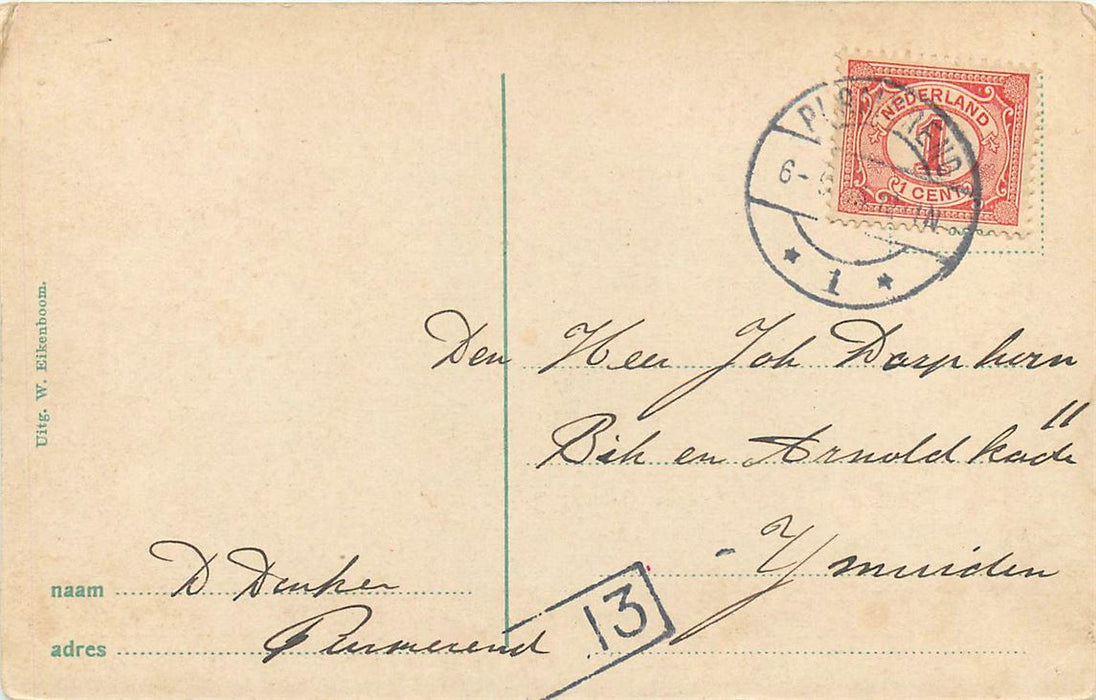 NEDERLAND
1
1 CENT
6-
1
Uitg. W. Eikenboom.
Den Heer Joh Dorphern
Bik en Arnoldkade 11
Ymuiden
naam D Denker
adres Purmerend
13